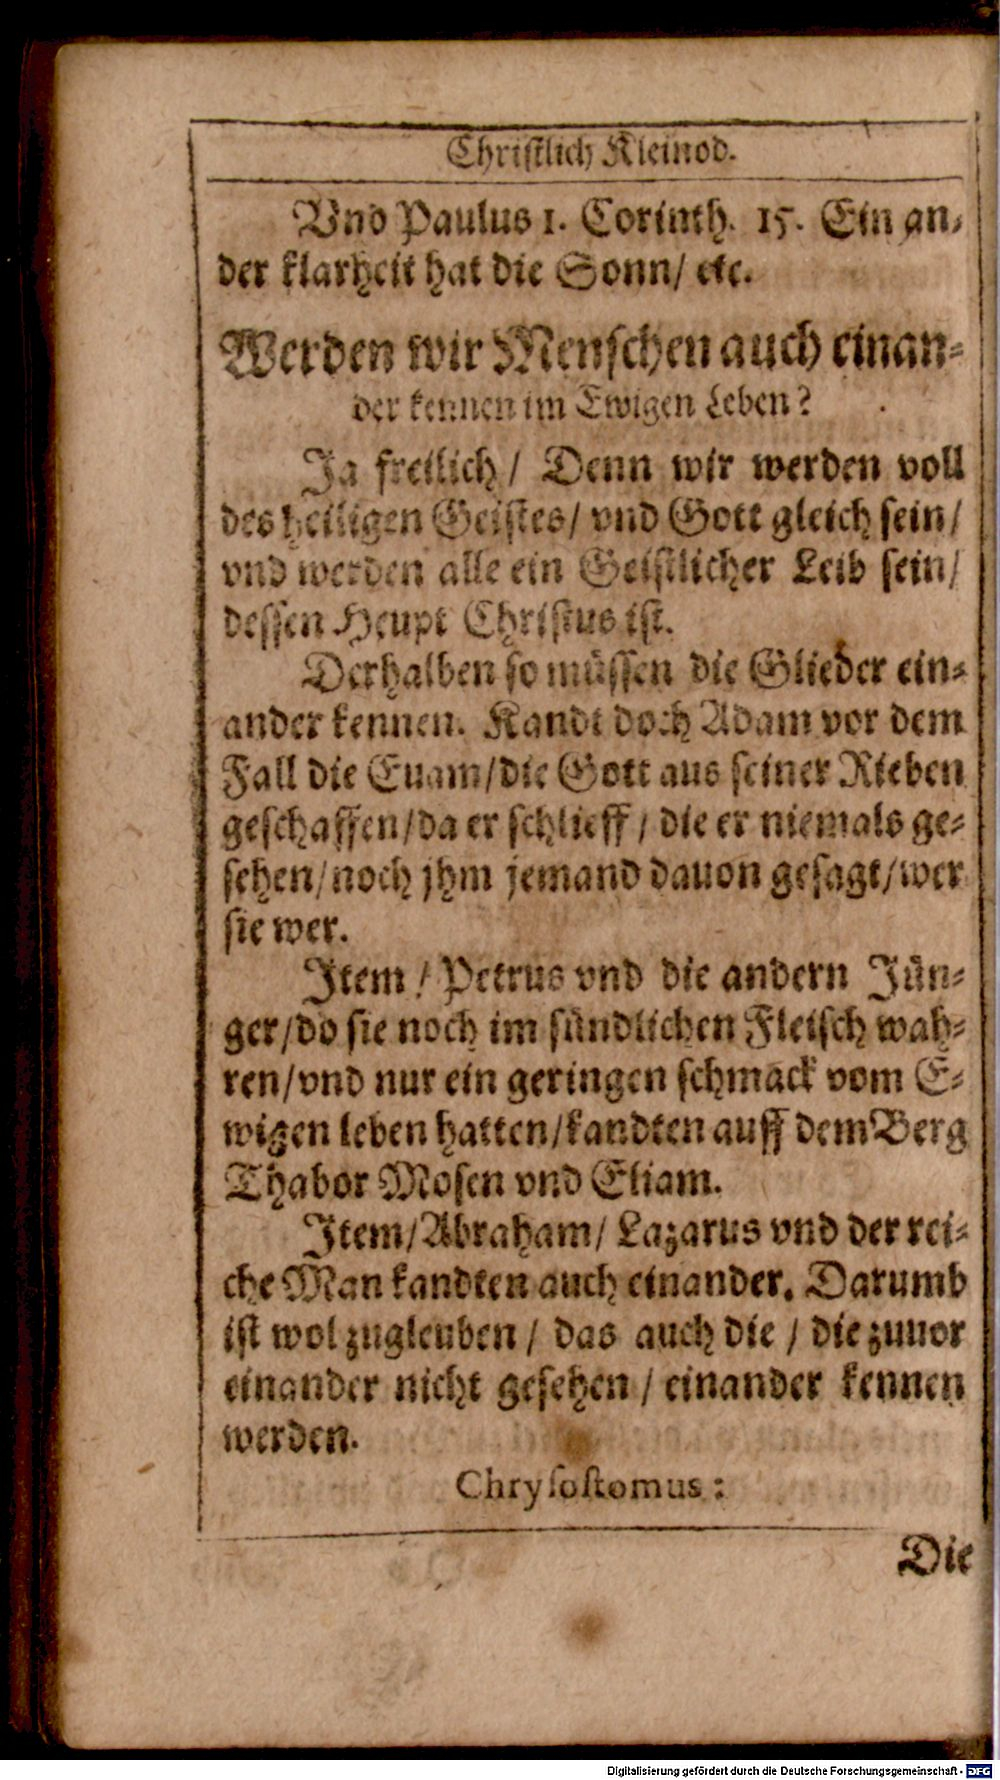 Christlich Kleinod.
Vnd Paulus 1. Corinth. 15. Ein an-
der klarheit hat die Sonn/ etc.
Werden wir Menschen auch einan-
der kennen im Ewigen Leben?
Ja freilich / Denn wir werden voll
des heiligen Geistes/ vnd Gott gleich sein/
vnd werden alle ein Geistlicher Leib sein/
dessen Heupt Christus ist.
Derhalben so müssen die Glieder ein-
ander kennen. Kandt doch Adam vor dem
Fall die Euam/die Gott aus seiner Rieben
geschaffen/da er schlieff / die er niemals ge-
sehen/noch jhm jemand dauon gesagt/wer
sie wer.
Item / Petrus vnd die andern Jün-
ger/do sie noch im sündlichen Fleisch wah-
ren/vnd nur ein geringen schmack vom E-
wigen leben hatten/kandten auff dem Berg
Thabor Mosen vnd Eliam.
Item/Abraham/ Lazarus vnd der rei-
che Man kandten auch einander. Darumb
ist wol zugleuben / das auch die / die zuuor
einander nicht gesehen / einander kennen
werden.
Chrysostomus:
Die
Digitalisierung gefördert durch die Deutsche Forschungsgemeinschaft - DFG